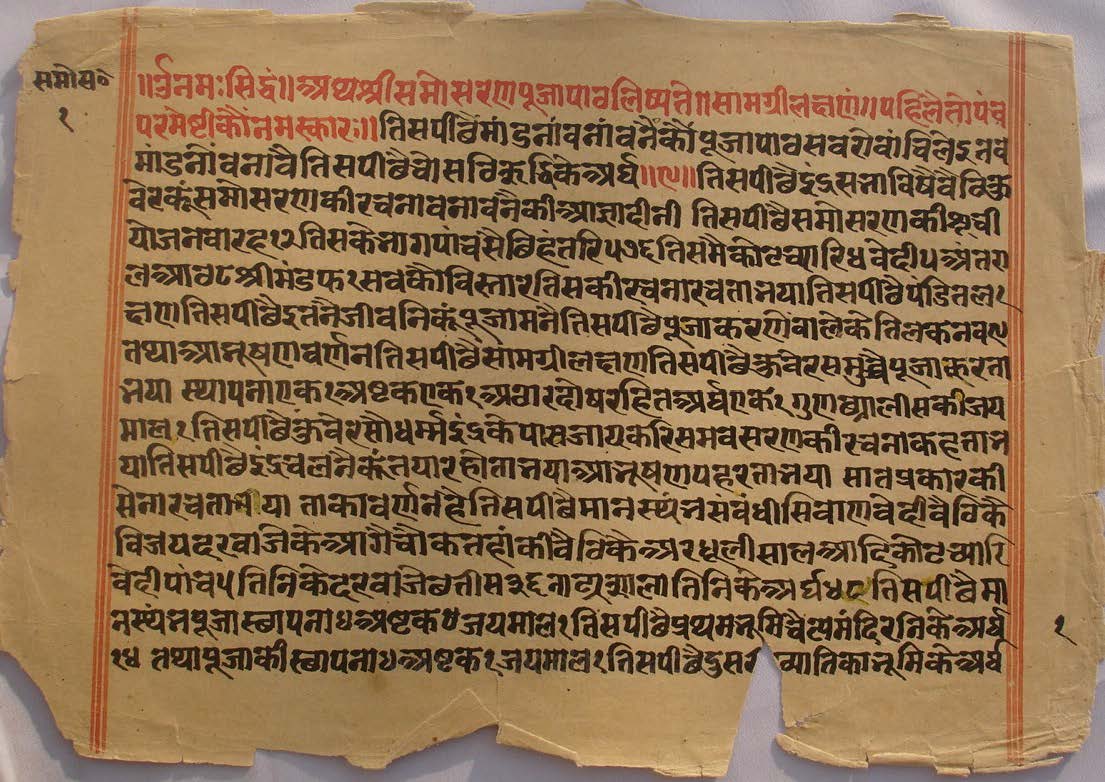 समोस॰
१
॥र्उनमःसिद्धं॥अथश्रीसमोसरणपूजापाठलिष्यते॥सामग्रीलक्षण॥पहिलैतोपंच
परमेष्टीकौंनमस्कारः॥तिसपीछैमांडनांवनांवनैकौपूजापाठसवरोवांचिलेइनव
मांडनांवनावैतिसपीछैचोसठिऋद्धिकेअर्घ॥९॥तिसपीछैइंद्रसभाविषैवैठिकु
वेरकूंसमोसरणकीरचनावनावनैकीआज्ञादीनी तिसपीछैसमोसरणकीपृथ्वी
योजनवारह१२तिसकेभागपांचसैछिहंतरि५७६तिसमैकोटच्यारि४वेदीप५अंतरा
लआठ८श्रीमंडफ१सवकौविस्तार तिसकीरचनारचताभयातिसपीछैपंडितल१
क्षणतिसपीछैइतनैजीवनिकूंपूजामनैतिसपीछैपूजाकरणेवालेकेतिलकनव९
तथाआभूषणवर्णनतिसपीछैसामग्रीलक्षणतिसपीछैकुवेरसमुच्चैपूजाकरता
भया स्थापनाएक१अष्टकएक१अठारदोषरहितअर्घएक१गुणछ्यालीसकीजय
माल१तिसपीछैकुवेरसौधर्म्मइंद्रकेपासजायकरिसमवसरणकीरचनाकहताभ
यातिसपीछैइंद्रचलनैकूंतयारहोताभयाआभूषणपहरताभया सातप्रकारकी
सेनारचताभीया ताकावर्णनहैतिसपीछैमानस्थंभसंवंधीसिवाणवेदीवैठिकै
विजयदरवाजेकेआगैचौकतहांकीवैठिकैअरधूलीसालआदिकोटच्यारि
वेदीपांच५तिनिकेदरवाजेछतीस३६नाट्यशालातिनिकेअर्घ तिसपीछैमा
नस्थंभपूजास्छापना४अष्टक४जयमाल१तिसपीछैप्रथमभूमिचैत्यमंदिरनिकेअर्घ
१४ तथापूजाकीस्छापना अष्टक१जयमाल१तिसपीछैदुसर षातिकाभूमिकेअर्घ
१